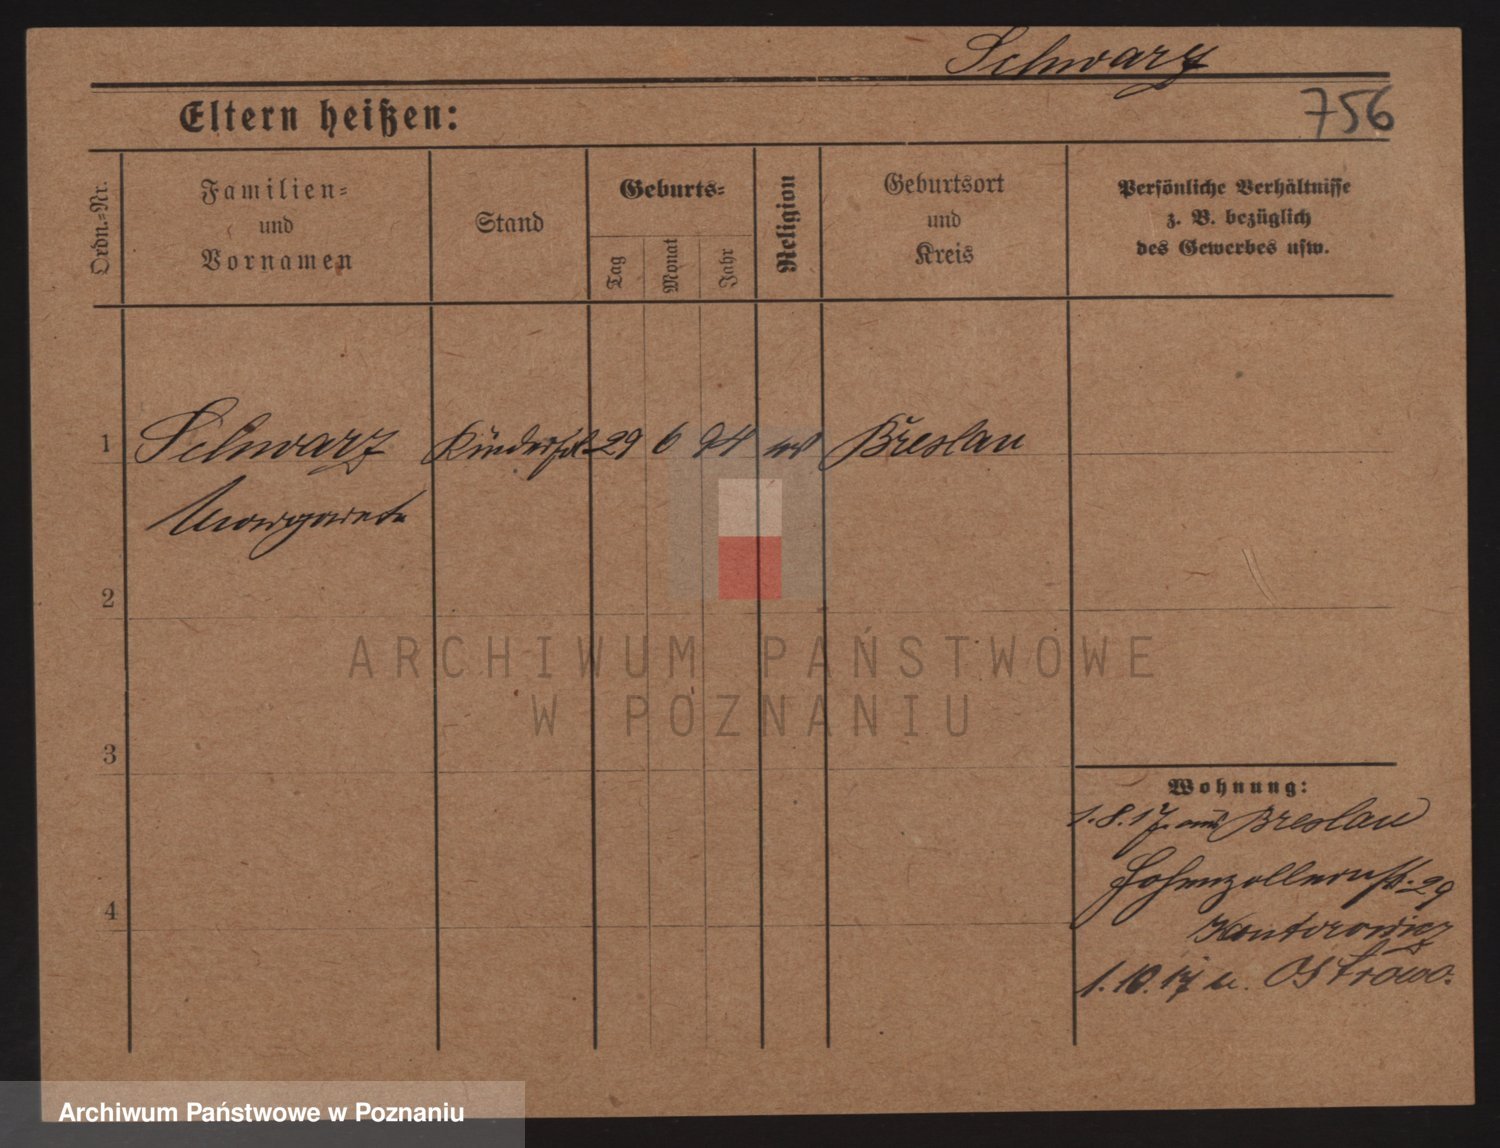 Schwarz
Eltern heißen:
756
Ordn.=Nr.
Familien=
und
Vornamen
Stand
Geburts=
Tag
Monat
Jahr
Religion
Geburtsort
und
Kreis
Persönliche Verhältnisse
z. B. bezüglich
des Gewerbes usw.
1
Schwarz
29 6 94
Breslau
Margarete
2
ARCHIWUM PAŃSTWOWE
W POZNANIU
3
Wohnung:
1.8.17. aus Breslau
Hohenzollernstr. 29
4
Kantorowicz
1.10.17 n. Ostrowo.
Archiwum Państwowe w Poznaniu